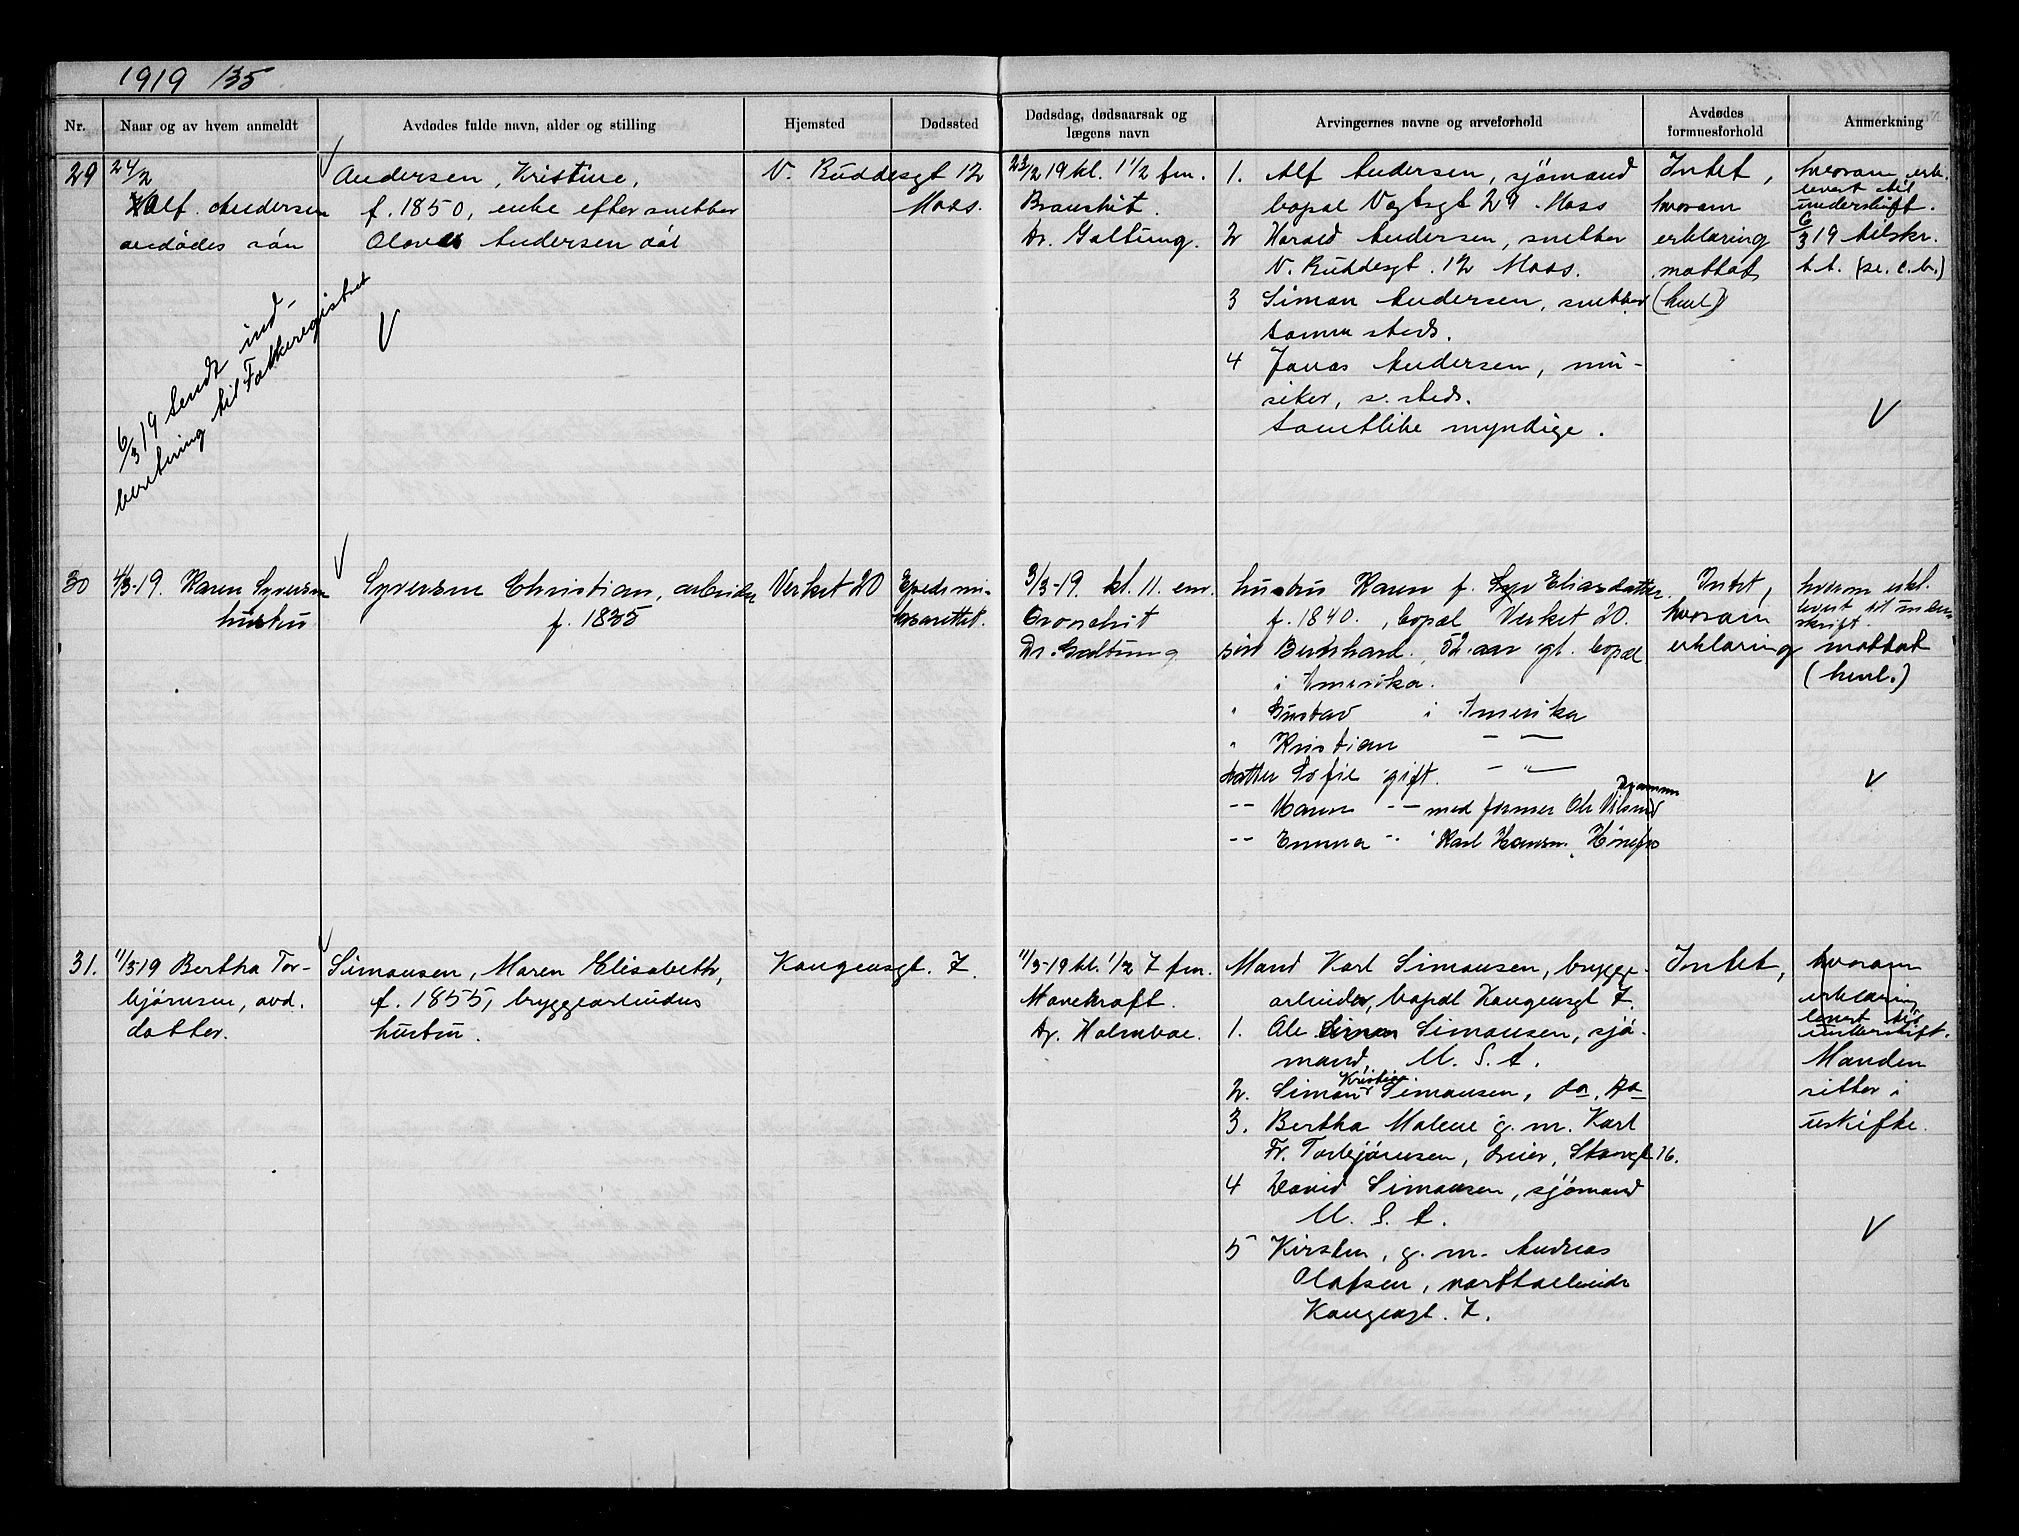 1919 135
Nr.
Naar og av hvem anmeldt
Avdødes fulde navn, alder og stilling
Hjemsted
Dødssted
Dødsdag, dødsaarsak og
lægens navn
Arvingernes navne og arveforhold
Avdødes
formnesforhold
Anmerkning
29
24/2
Alf Andersen
avdødes søn
6/3 19 sendt ind-
beretning til Fakkeregistret
Andersen, Kristine,
f. 1850, enke efter snekker
Andersen død
V. Buddesgt 12
Moss.
23/2 19 kl. 1 1/2 fm.
Bronskit.
Dr. Galtung.
1. Alf Andersen, sjømand
bopæl Vogtsgt 29 Moss
2 Harald Andersen, snekker
V. Buddesgt. 12 Moss.
3 Simon Andersen, snekker
samme steds.
4 Jonas Andersen, mu-
siker, s. steds.
Samtlike myndige.
Intet,
hvorom
erklæring
mottat
(henl.)
hvorom erk.
levert til
underskrift.
6/3 19 tilskr.
t.t. (se. c. b.)
30
4/3-19. Karen Syversen
hustru
Syversen Christian, arbeider
f. 1835
Verket 20
Epedemi-
lasarettet.
3/3-19. kl. 11. em.
Bronchit
Dr. Galtung
hustru Karen f. Eliasdatter
f. 1840., bopæl Verket 20.
søn Bernhard, 52 aar gl. bopæl
i Amerika.
" Gustav i Amerika
" Kristian - " -
datter Sofie gift. - " -
-- Maren -- med former Ole Drammen
-- Emma -- " Karl Hansen, Hønefos
Intet,
hvorom
erklæring
hvorom erkl.
levert til under-
skrift.
mottat
(henl.)
31.
11/3 19 Bertha Tor-
bjørnsen, avd.
datter.
Simonsen, Maren Elisabeth,
f. 1855, bryggearbeiders
hustru.
Kongensgt. 7.
11/3-19 kl. 1/2 7 fm.
Mavekraft.
Dr. Holmboe.
Mand Karl Simonsen, brygge-
arbeider, bopæl Kongensgt 7.
1. Ole Simonsen, sjø-
mand, U. S. A.
2. Simon Kristian Simonsen, do, do
3. Bertha Malene g. m. Karl
Fr. Torbjørnsen, dreier, 16.
4 David Simonsen, sjømand
U. S. A.
5 Kirsten, g. m. Andreas
Olafsen, verftsarbeider
Kongensgt. 7.
Intet,
hvorom
erklæring
levert til
underskrift.
Manden
sitter i
uskifte.